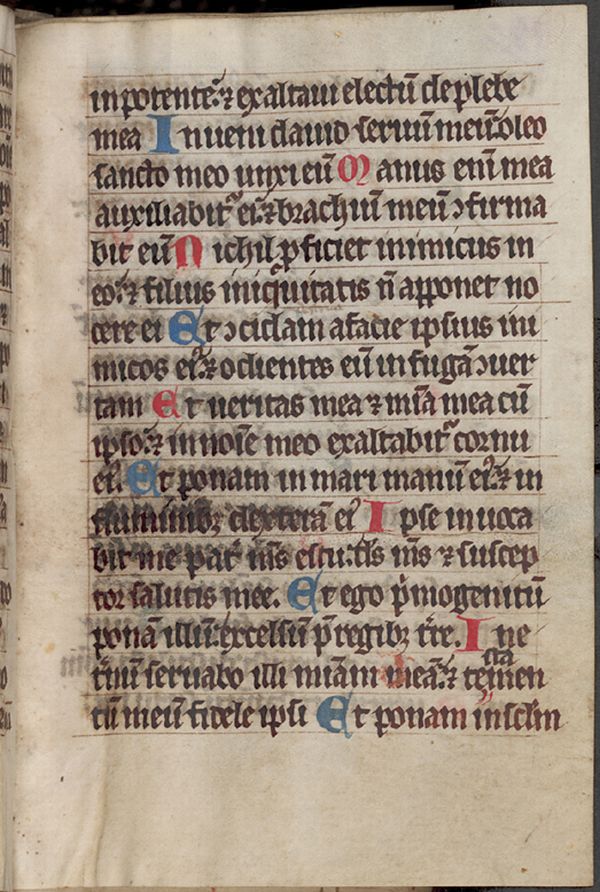 in potente: ⁊ exaltaui electū de plebe
mea Inueni dauid seruū meū: oleo
sancto meo unxi eū Manus enī mea
auxiliabit᷑ ei: ⁊ brachiū meū ↄfirma
bit eū Nichil ꝓficiet inimicus in
eo: ⁊ filius iniquitatis nō apponet no
cere ei Et ↄcidam a facie ipsius ini
micos eiꝰ: ⁊ odientes eū in fugā ↄuer
tam Et ueritas mea ⁊ mīa mea cū
ipso: ⁊ in noīe meo exaltabit᷑ cornu
eiꝰ. Et ponam in mari manū eiꝰ: ⁊ in
fluminibꝫ dexterā eiꝰ Ipse inuoca
bit me pat᷑ ms̄ es tu: ds̄ ms̄ ⁊ suscep
tor salutis mee. Et ego pͥmogenitū
ponā illū: excelsū p̄ regibꝫ tr̄e. In e
t᷑nū seruabo illi miām meā: ⁊ testamen
tū meū fidele ipsi Et ponam in sclm̄